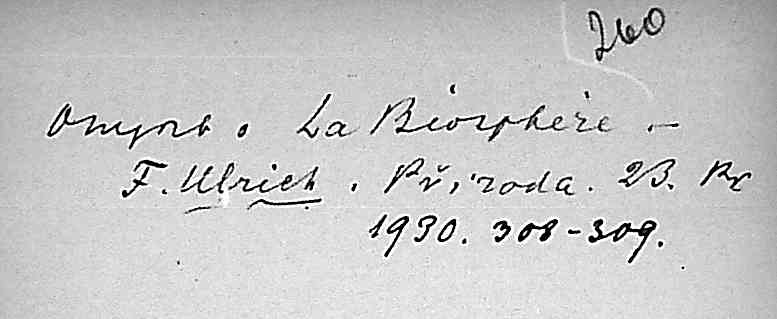 260
Отзывъ. La Biosphère. –
F. Ulrich. Příroda. 23. Pr
1930. 308-309.